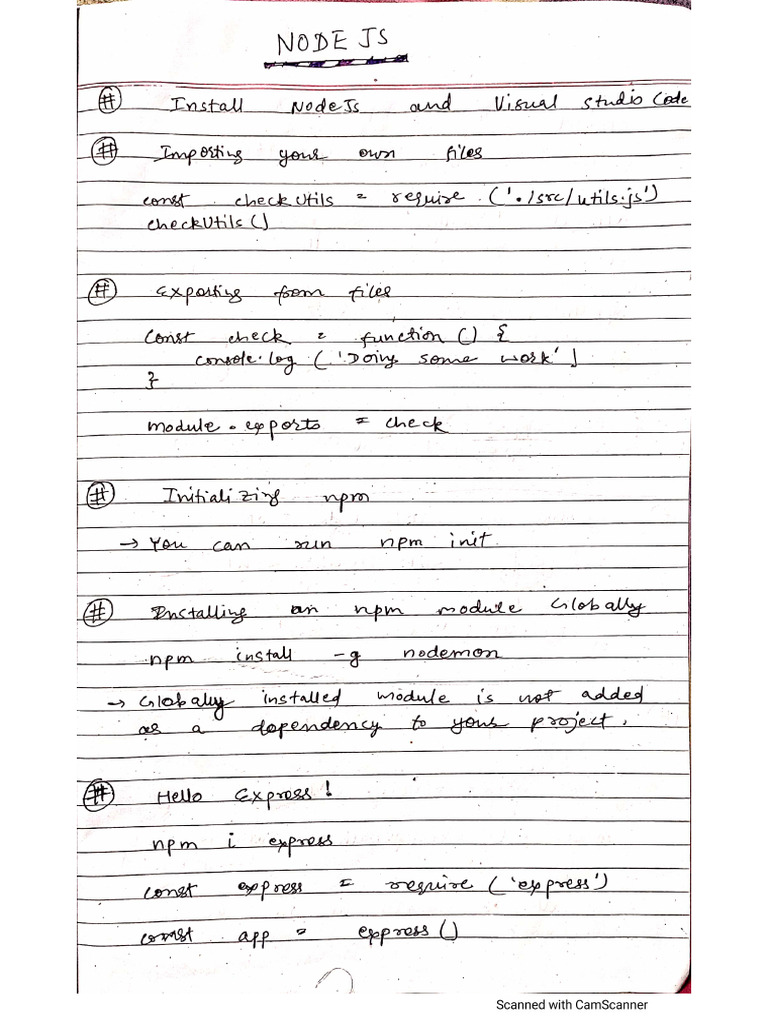 NODE JS
# Install NodeJs and Visual Studio Code
# Importing your own files
const checkUtils = require ('./src/utils.js')
checkUtils()
# Exporting from files
const check = function () {
console.log ('Doing some work')
}
module.exports = check
# Initializing npm
→ You can run npm init
# Installing an npm module Globally
npm install -g nodemon
→ Globally installed module is not added
as a dependency to your project.
# Hello Express!
npm i express
const express = require ('express')
const app = express()
Scanned with CamScanner